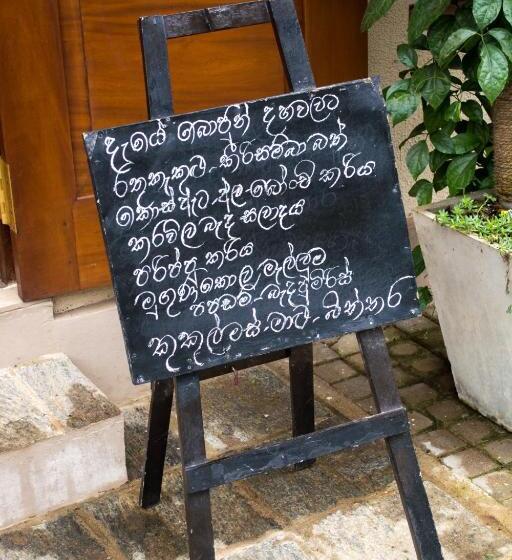 දැයේ බොජුන් දහවලට
රතකැකුළු - කීරිසම්බා බත්
කොස් ඇට - අල - බෝංචි කරිය
කරවිල බැද සලාදය
පරිප්පු කරිය
මුගුණුකොල මැල්ලුම
පපඩම් - බැදපුමිරිස්
කුකුල්මස් - මාළු - බිත්තර